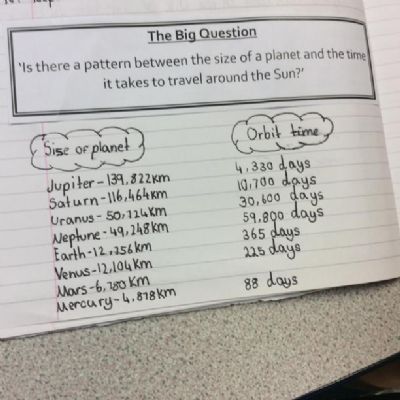 The Big Question
'Is there a pattern between the size of a planet and the time
it takes to travel around the Sun?'
Size of planet
Jupiter - 139,822km
Saturn - 116,464km
Uranus - 50,724km
Neptune - 49,248km
Earth - 12,756km
Venus - 12,104km
Mars - 6,780km
Mercury - 4,878km
Orbit time
4,330 days
10,700 days
30,600 days
59,800 days
365 days
225 days
88 days